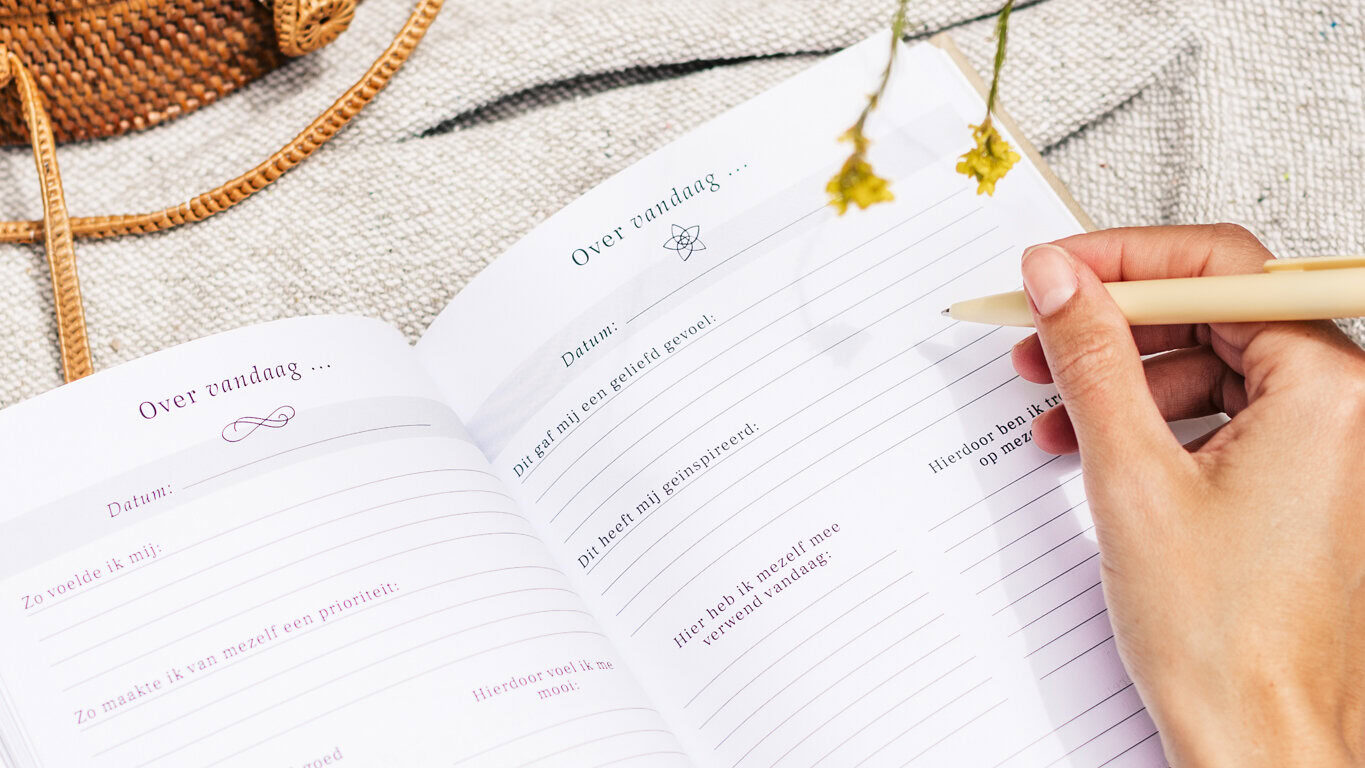 Over vandaag ...
Datum:
Zo voelde ik mij:
Zo maakte ik van mezelf een prioriteit:
Hierdoor voel ik me
mooi:
goed
Over vandaag ...
Datum:
Dit gaf mij een geliefd gevoel:
Dit heeft mij geïnspireerd:
Hier heb ik mezelf mee
verwend vandaag:
Hierdoor ben ik
op